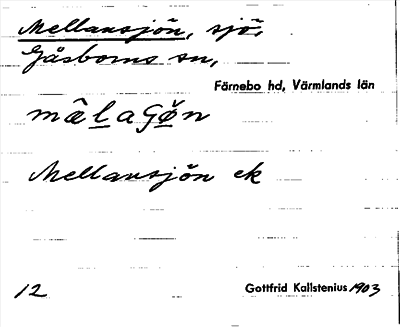 Mellansjön, sjö,
Gåsborns sn,
Färnebo hd, Värmlands län
mâlaGøn
Mellansjön ek
12
Gottfrid Kallstenius 1903